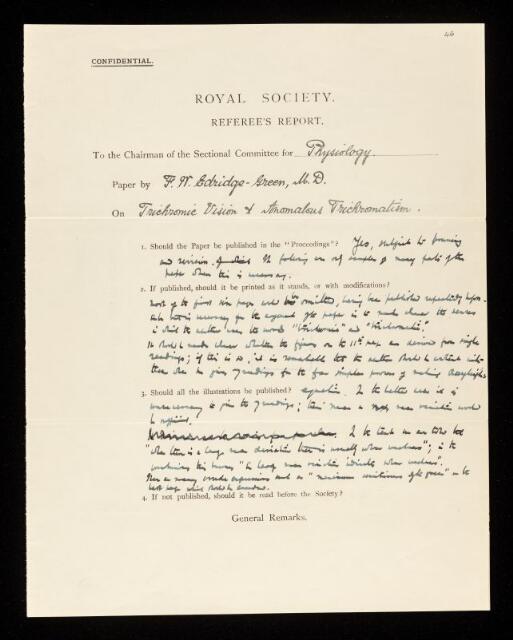 46
CONFIDENTIAL.
ROYAL SOCIETY.
REFEREE'S REPORT.
To the Chairman of the Sectional Committee for Physiology.
Paper by F. W. Edridge-Green, M.D.
On Trichromic Vision & Anomalous Trichromatism.
1. Should the Paper be published in the "Proceedings"? Yes, subject to pruning
and revision. The following are only examples of many parts of the
paper where this is necessary.
2. If published, should it be printed as it stands, or with modifications?
most of the first page could be omitted, having been published repeatedly before.
is necessary for the argument of the paper is to make clearer the senses
in which the author uses the words "trichromic" and "trichromatic".
It should be made clear whether the figures on the 11th page are derived from single
readings; if this is so, it is remarkable that the author should be content with
than to give 7 readings for the far simpler process of making Rayleigh's
3. Should all the illustrations be published? equation. In the latter case it is
unnecessary to give the 7 readings; their mean & mean variation would
be sufficient.
I he that
"when there is a large mean deviation there is usually colour weakness"; is the
"a large mean variation indicates colour weakness".
There are many crude expressions such as " of the green" on the
last page which should be amended.
4. If not published, should it be read before the Society?
General Remarks.